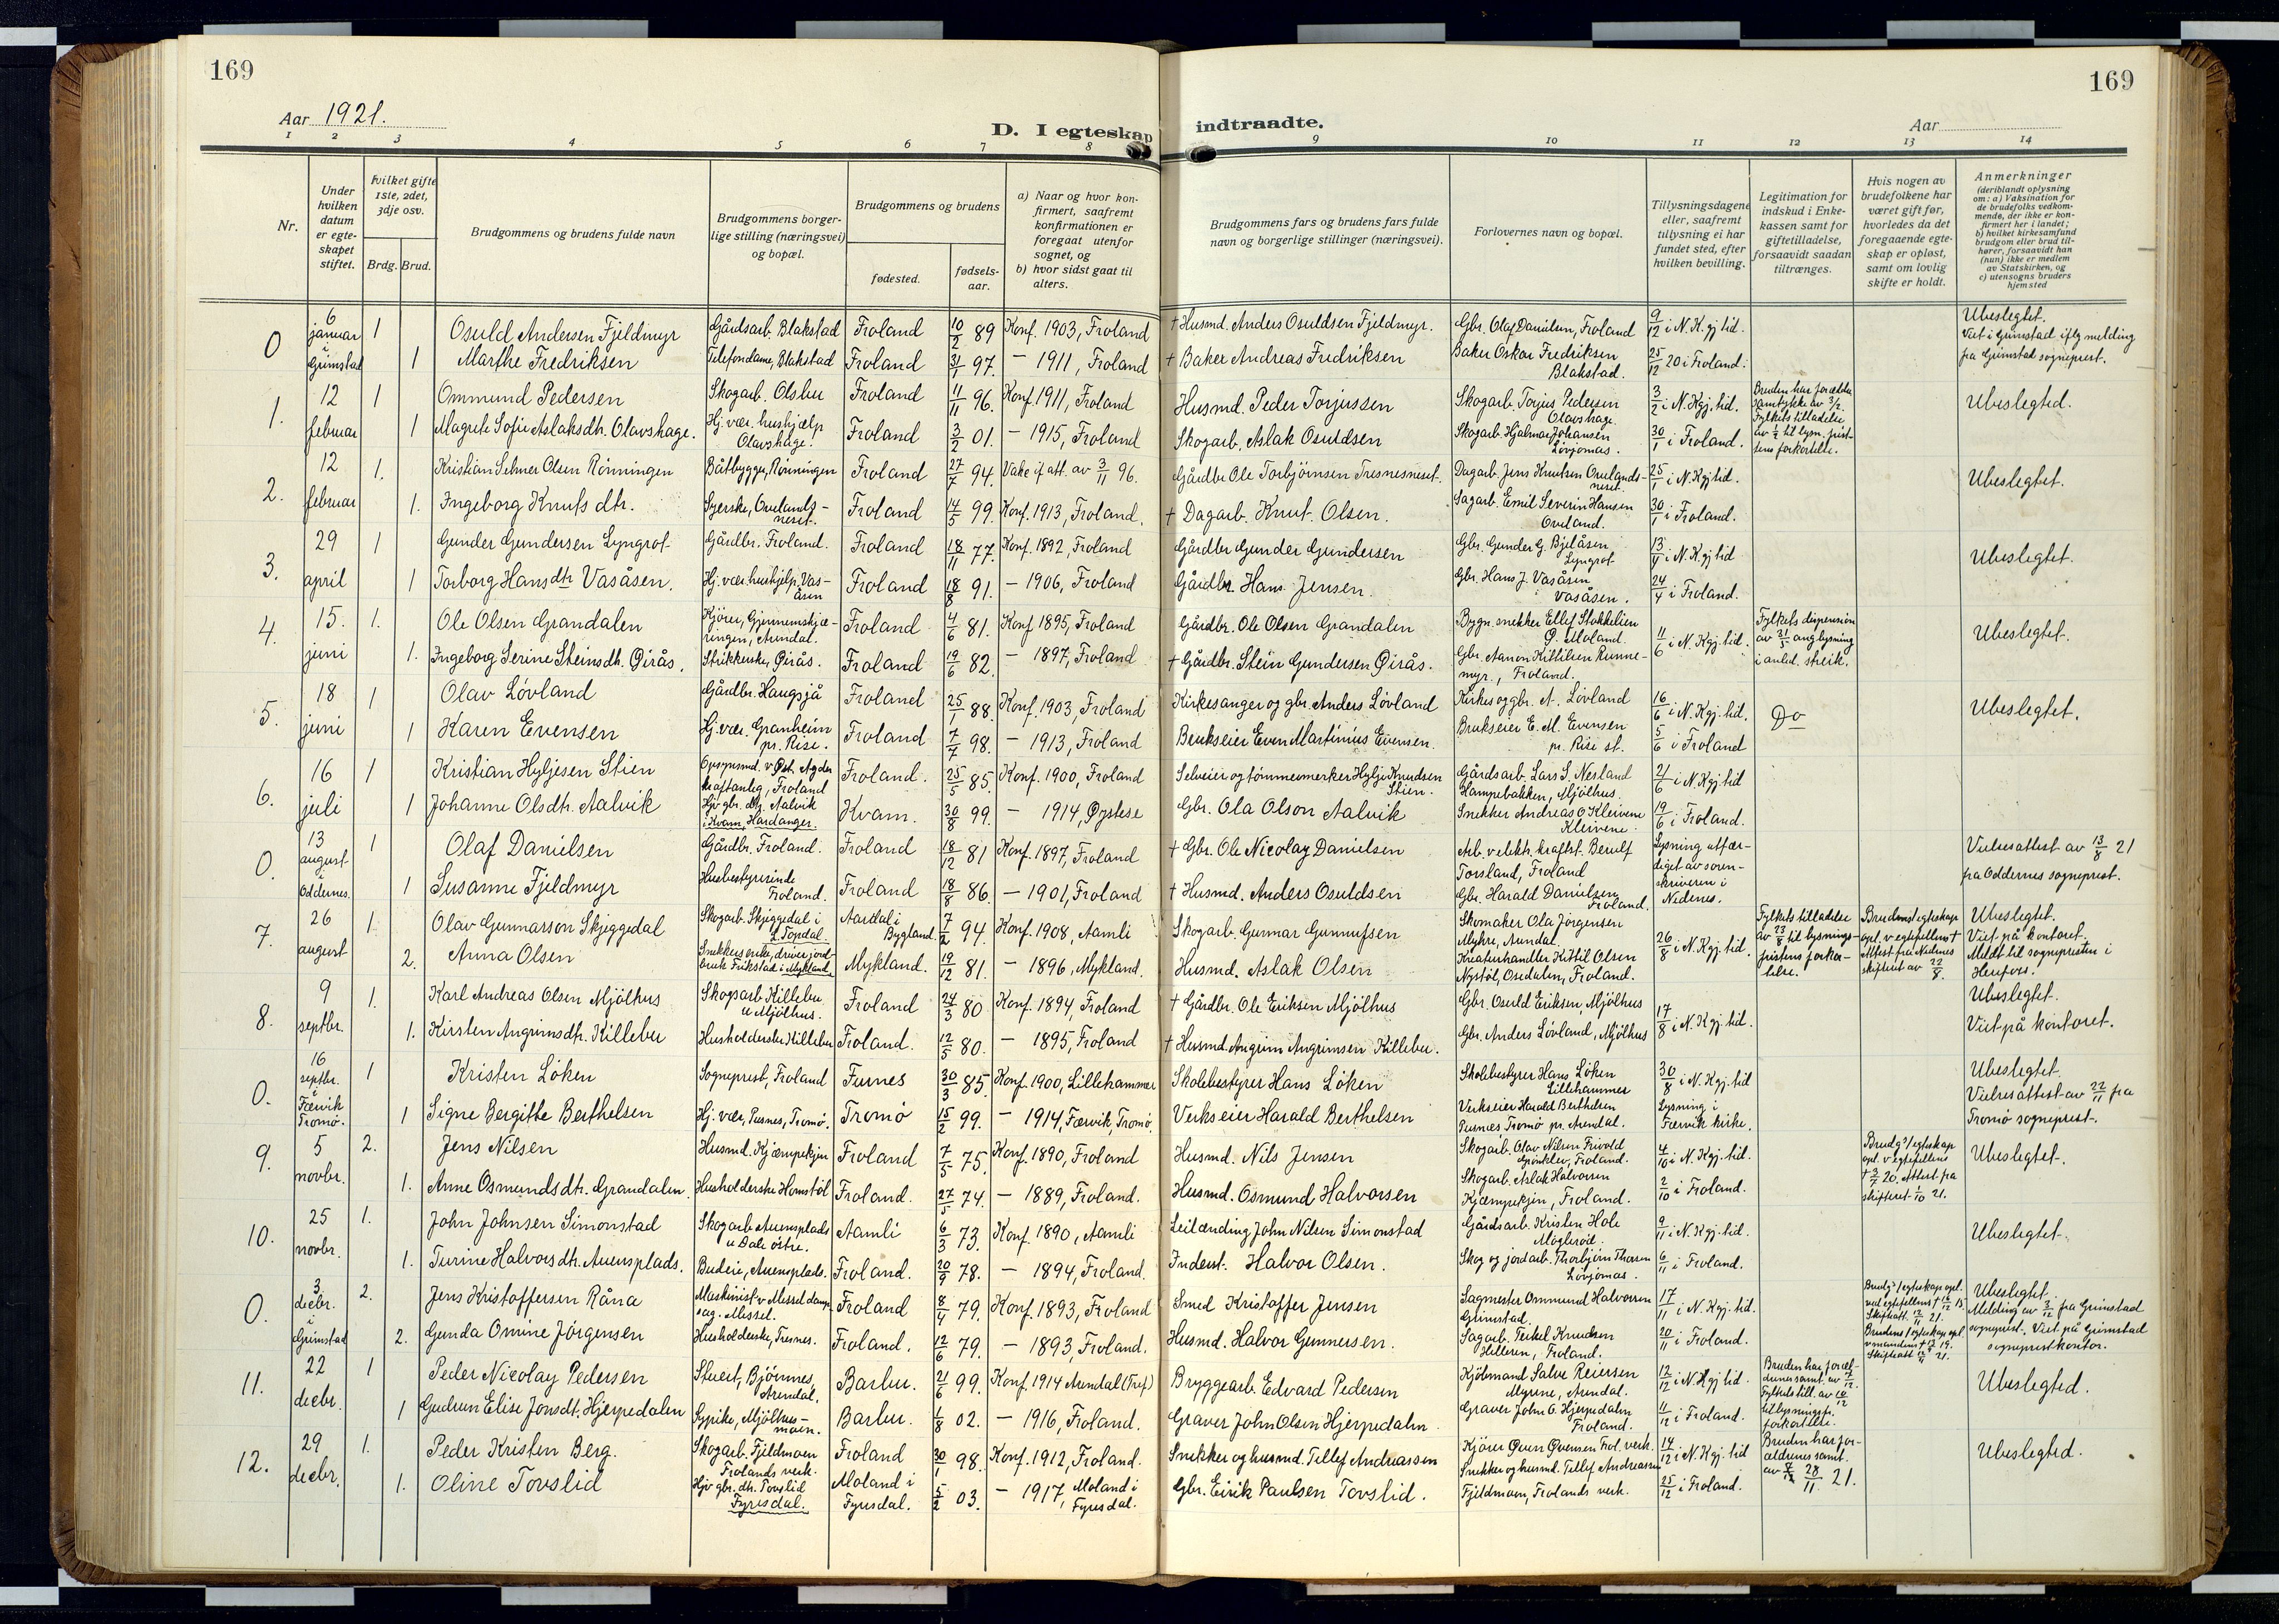 169
169
Aar 1921.
D. I egteskap indtraadte.
Aar
1 2 3 4 5 6 7 8 9 10 11 12 13 14
Nr.
Under hvilken datum er egteskapet stiftet.
Hvilket gifte 1ste, 2det, 3dje osv.
Brdg. Brud.
Brudgommens og brudens fulde navn
Brudgommens borgerlige stilling (næringsvei) og bopæl.
Brudgommens og brudens
fødested.
fødselsaar.
a) Naar og hvor konfirmert, saafremt konfirmationen er foregaat utenfor sognet, og
b) hvor sidst gaat til alters.
Brudgommens fars og brudens fars fulde navn og borgerlige stillinger (næringsvei).
Forlovernes navn og bopæl.
Tillysningsdagene eller, saafremt tillysning ei har fundet sted, efter hvilken bevilling.
Legitimation for indskud i Enkekassen samt for giftetilladelse, forsaavidt saadan tiltrænges.
Hvis nogen av brudefolkene har været gift før, hvorledes da det foregaaende egteskap er opløst, samt om lovlig skifte er holdt.
Anmerkninger
(deriblandt oplysning om: a) Vaksination for de brudefolks vedkommende, der ikke er konfirmert her i landet; b) hvilket kirkesamfund brudgom eller brud tilhører, forsaavidt han (hun) ikke er medlem av Statskirken, og c) utensogns bruders hjemsted
0 6 januar i Grimstad 1 Osuld Andersen Fjeldmyr Gårdsarb. Blakstad Froland 10/2 89 Konf. 1903, Froland † Husmd. Anders Osuldsen Fjeldmyr. Gbr. Olaf Danielsen, Froland 9/12 i N.K.gj.tid. Ubeslegtet. Viet i Grimstad iflg melding fra Grimstad sogneprest.
1 Marthe Fredriksen Telefondame, Blakstad Froland 31/1 97. – 1911, Froland † Baker Andreas Fredriksen Baker Oskar Fredriksen Blakstad. 25/12 20 i Froland.
1. 12 februar 1 Ommund Pedersen Skogarb. Olsbu Froland 11/11 96. Konf. 1911, Froland Husmd. Peder Torjussen Skogarb. Torjus Pedersen Olavshage. 3/2 i N.Kgj.tid. Bruden har forældresamtykke av 3/2. Fylkets tilladelse av 1/2 til lysn. fristens forkortelse. Ubeslegted.
1 Magrete Sofie Aslaksdtr. Olavshage. Hj. vær. hushjælp Olavshage. Froland 3/2 01. – 1915, Froland Skogarb. Aslak Osuldsen Skogarb. Hjalmar Johansen Løvjomas. 30/1 i Froland.
2. 12 februar 1. Kristian Selmer Olsen Rønningen Båtbygger, Rønningen Froland 27/7 94. Vake if. att. av 3/11 96. Gårdbr. Ole Torbjørnsen Tresnesneset. Dagarb. Jens Knutsen Ovelandsneset. 25/1 i N.Kgj.tid. Ubeslegtet.
1. Ingeborg Knuts dtr. Syerske, Ovelandsneset. Froland 14/5 99. Konf. 1913, Froland. † Dagarb. Knut Olsen. Sagarb. Emil Severin Hansen Oveland. 30/1 i Froland.
3. 29 april 1 Gunder Gundersen Lyngrot Gårdbr. Froland. Froland 18/11 77. Konf. 1892, Froland Gårdbr. Gunder Gundersen Gbr. Gunder G. Bjelåsen Lyngrot 13/4 i N.Kgj.tid Ubeslegtet.
1 Torborg Hansdtr Vasåsen. Hj. vær. hushjelp, Vasåsen Froland 18/8 91. – 1906, Froland Gårdbr. Hans Jensen. Gbr. Hans J. Vasåsen Vasåsen. 24/4 i Froland.
4. 15. juni 1. Ole Olsen Grandalen Kjører, Gjennemskjæringen, Arendal. Froland 4/6 81. Konf 1895, Froland Gårdbr. Ole Olsen Grandalen Bygn. snekker Ellef Stokkelien Ø. Moland. 11/6 i N.Kgj.tid. Fylkets dispension av 31/5 ang lysning i anled. streik. Ubeslegtet.
1. Ingeborg Serine Steinsdtr. Øirås. Strikkerske, Øirås. Froland 19/6 82. – 1897, Froland † Gårdbr. Stein Gundersen Øirås. Gbr. Aanon Kittilsen Runnemyr., Froland.
5. 18 juni 1 Olav Løvland Gårdbr. Haugsjå Froland 25/1 88. Konf. 1903, Froland Kirkesanger og gbr. Anders Løvland Kirkes og gbr. A. Løvland 16/6 i N.Kgj.tid. Do Ubeslegtet.
1 Karen Evensen Hj. vær. Granheim pr. Rise. Froland 7/4 98. – 1913, Froland Brukseier Even Martinius Evensen. Brukseier E. M. Evensen pr. Rise st. 5/6 i Froland
6. 16 juli 1 Kristian Hyljesen Stien Opsynsmd. v Øst Agder kraftanlæg, Froland Froland. 25/5 85. Konf. 1900, Froland Selveier og tømmermerker Hylje Knudsen Stien. Gårdsarb. Lars S. Nesland Hampebakken, Mjølhus. 21/6 i N.Kgj.tid
1 Johanne Olsdtr. Aalvik Hjv gbr. dtr. Aalvik i Kvam, Hardanger. Kvam. 30/8 99. – 1914, Øystese Gbr. Ola Olson Aalvik Snekker Andreas O Kleivene Kleivene. 19/6 i Froland.
0. 13 august i Oddernes. 1 Olaf Danielsen Gårdbr. Froland. Froland 18/12 81 Konf. 1897, Froland † Gbr. Ole Nicolay Danielsen Arb. v elektr. kraftst. Berulf Torsland, Froland Lysning utfærdiget av sorenskriveren i Nedenes. Vielsesattest av 13/8 21 fra Oddernes sogneprest.
1 Susanne Fjeldmyr Husbestyrerinde Froland. Froland 18/8 86. – 1901, Froland † Husmd. Anders Osuldsen Gbr. Harald Danielsen Froland.
7. 26 august 1. Olav Gunnarsson Skjeggedal Skogarb. Skjeggedal i Topdal Aardal i Bygland. 7/2 94. Konf. 1908, Aamli Skogarb. Gunnar Gunnufsen Skomaker Ola Jørgensen Myhre, Arendal. 26/8 i N.Kgj.tid. Fylkets tilladelse av 23/8 til lysningsfristens forkortelse. Brudens egteskap opl. v egtefellens † Attest fra Nedenes skifteret av 22/8. Ubeslegtet. Viet på kontoret. Meldt til sognepresten i Herefoss.
2. Anna Olsen Snekkers enke, driver jordbruk Frikstad i Mykland Mykland. 19/12 81. – 1896, Mykland. Husmd. Aslak Olsen Kreaturhandler Kittil Olsen Nystøl, Osedalen, Froland.
8. 9 septbr. 1. Karl Andreas Olsen Mjölhus Skogsarb Killebu u Mjölhus. Froland 24/3 80 Konf. 1894, Froland † Gårdbr. Ole Eriksen Mjölhus Gbr. Osuld Eriksen, Mjölhus 17/8 i N.Kgj.tid. Ubeslegtet. Viet på kontoret.
1. Kirsten Angrimsdtr. Killebu Husholderske Killebu Froland. 12/5 80. – 1895, Froland † Husmd. Angrim Angrimsen Killebu. Gbr. Anders Løvland, Mjölhus
0. 16 septbr. i Færvik Tromø. 1 Kristen Löken Sogneprest, Froland Furnes 30/3 85. Konf. 1900, Lillehammer Skolebestyrer Hans Löken Skolebestyrer Hans Löken Lillehammer 30/8 i N.Kgj.tid Ubeslegtet. Vielsesattest av 22/11 fra Tromø sogneprest.
1 Signe Bergitte Berthelsen Hj. vær, Pusnes, Tromø. Tromö 15/2 99. – 1914, Færvik, Tromø. Verkseier Harald Berthelsen Verkseier Harald Berthelsen Pusnes Tromø pr. Arendal. Lysning i Færvik kirke.
9. 5 novbr. 2. Jens Nilsen Husmd. Kjæmpekjen Froland 7/5 75. Konf. 1890, Froland Husmd. Nils Jensen Skogarb. Olav Nilsen Frivold Grönklev, Froland. 4/10 i N.Kgj.tid. Brudg's/egteskap opl. v egtefellens † 3/7 20. Attest fra skifteret 1/10 21. Ubeslegtet.
1. Anne Osmundsdtr. Grandalen Husholderske Homstøl Froland. 27/5 74. – 1889, Froland. Husmd. Osmund Halvorsen Skogarb. Aslak Halvorsen Kjæmpekjen, Froland. 2/10 i Froland.
10. 25 novbr. 1. John Johnsen Simonstad Skogarb. Auensplads u Dale østre. Aamli 6/3 73. Konf. 1890, Aamli Leilænding John Nilsen Simonstad Gårdsarb. Kristen Hole Møglerøst. 9/11 i N.Kgj.tid. Ubeslegtet.
1. Turine Halvorsdtr. Auensplads. Budeie, Auensplads. Froland. 20/9 78. – 1894, Froland. Inderst. Halvor Olsen. Skog og jordarb. Thorbjørn Thorsen Løvjomas. 6/11 i Froland.
0. 3 decbr. i Grimstad 2. Jens Kristoffersen Råna Maskinist v Messel dampsag. Messel. Froland 8/4 79. Konf. 1893, Froland Smed Kristoffer Jensen Sagmester Ommund Halvorsen Grimstad. 17/11 i N.Kgj.tid. Brudg's/egteskap opl. ved egtefellens † 16/12 15. Skifteatt. 12/11 21. Ubeslegtet. Melding av 3/12 fra Grimstad sogneprest. Viet på Grimstad sogneprestkontor.
2. Gunda Omine Jörgensen Husholderske, Tresnes. Froland. 12/6 79. – 1893, Froland. Husmd. Halvor Gunnersen. Sagarb. Terkel Knudsen Hilleren, Froland. 20/11 i Froland. Brudens/egteskap opl. v mandens † 19. Skifteatt 21.
11. 22 decbr. 1 Peder Nicolay Pedersen Stuert, Bjönnes, Arendal. Barbu. 21/6 99. Konf. 1914 Arendal (Tref) Bryggearb. Edvard Pedersen Kjöbmand Salve Reiersen Myrene, Arendal. 12/12 i N.Kgj.tid. Bruden har forældrenes samt. av 7/12. Fylkets till. av 10/12 til lysningsfr. forkortelse. Ubeslegted.
1 Gudrun Elise Jonsdt. Hjerpedalen Sypike, Mjölhusmoen. Barbu. 1/8 02. – 1916, Froland. Graver John Olsen Hjerpedalen Graver John O. Hjerpedalen Froland. 11/12 i Froland.
12. 29 decbr. 1. Peder Kristen Berg. Skogarb. Fjeldmoen Frolands verk. Froland 30/1 98. Konf. 1912, Froland. Snekker og husmd. Tellef Andreassen Kjører Even Evensen Frol. verk. 14/12 i N.Kgj.tid Bruden har forældrenes samt. av 28/11 21. Ubeslegted.
1. Oline Tovslid Hjv gbr. dtr. Tovslid Fyresdal. Moland i Fyresdal. 5/2 03. – 1917, Moland i Fyresdal. Gbr. Eirik Paulsen Tovslid. Snekker og husmd. Tellef Andreassen Fjeldmoen, Frolands verk. 25/12 i Froland.